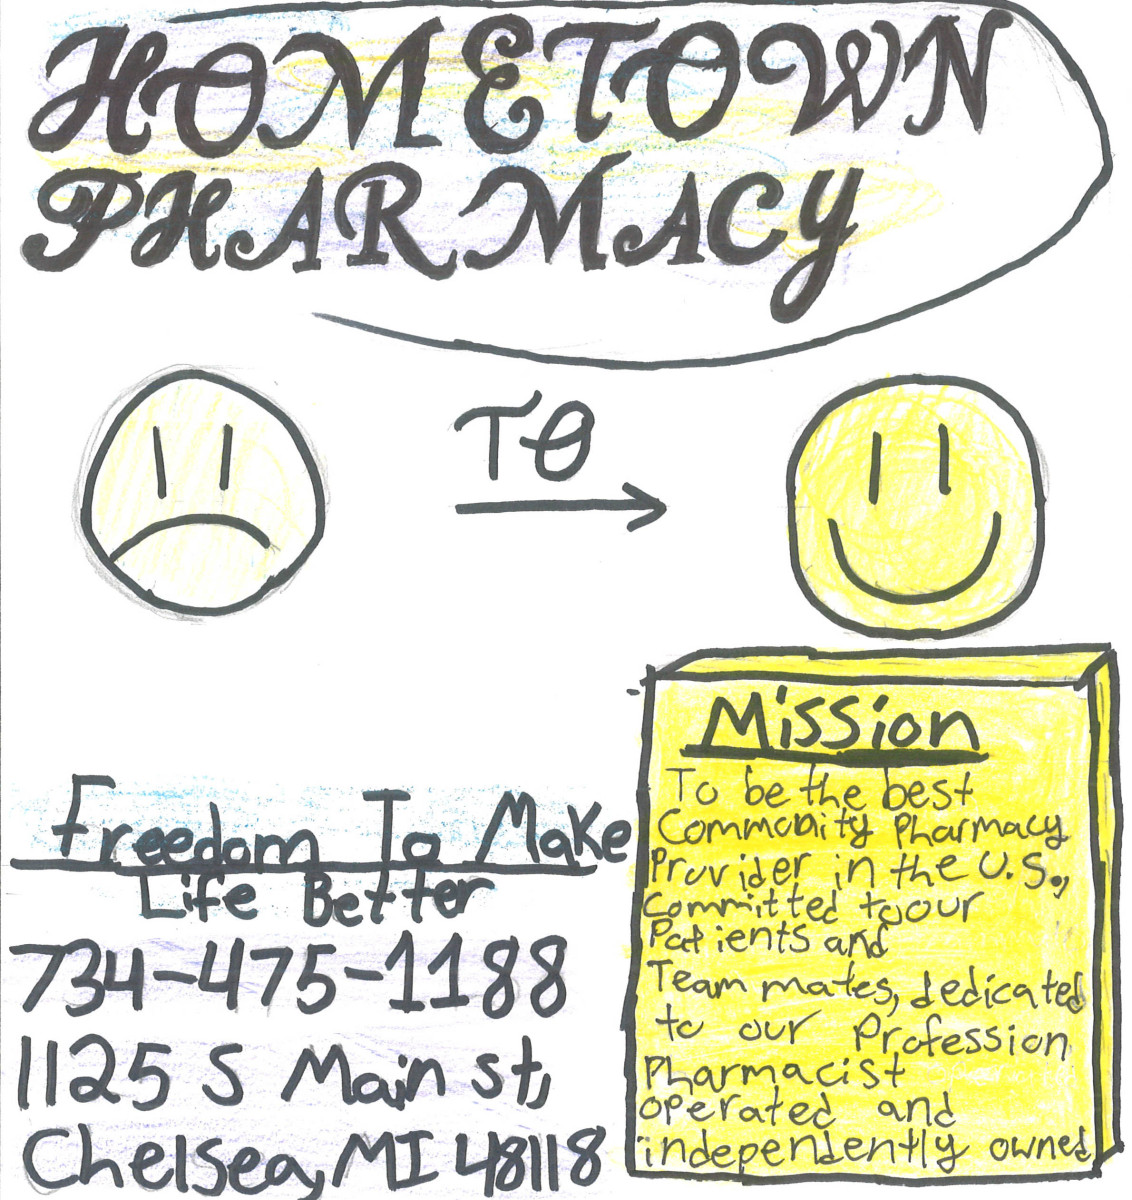 HOMETOWN
PHARMACY
TO
Mission
To be the best
Commonity Pharmacy
Provider in the U.S.,
committed to our
Patients and
Team mates, dedicated
to our Profession
Pharmacist
operated and
independently owned
Freedom To Make
Life Better
734-475-1188
1125 S Main st,
Chelsea, MI 48118